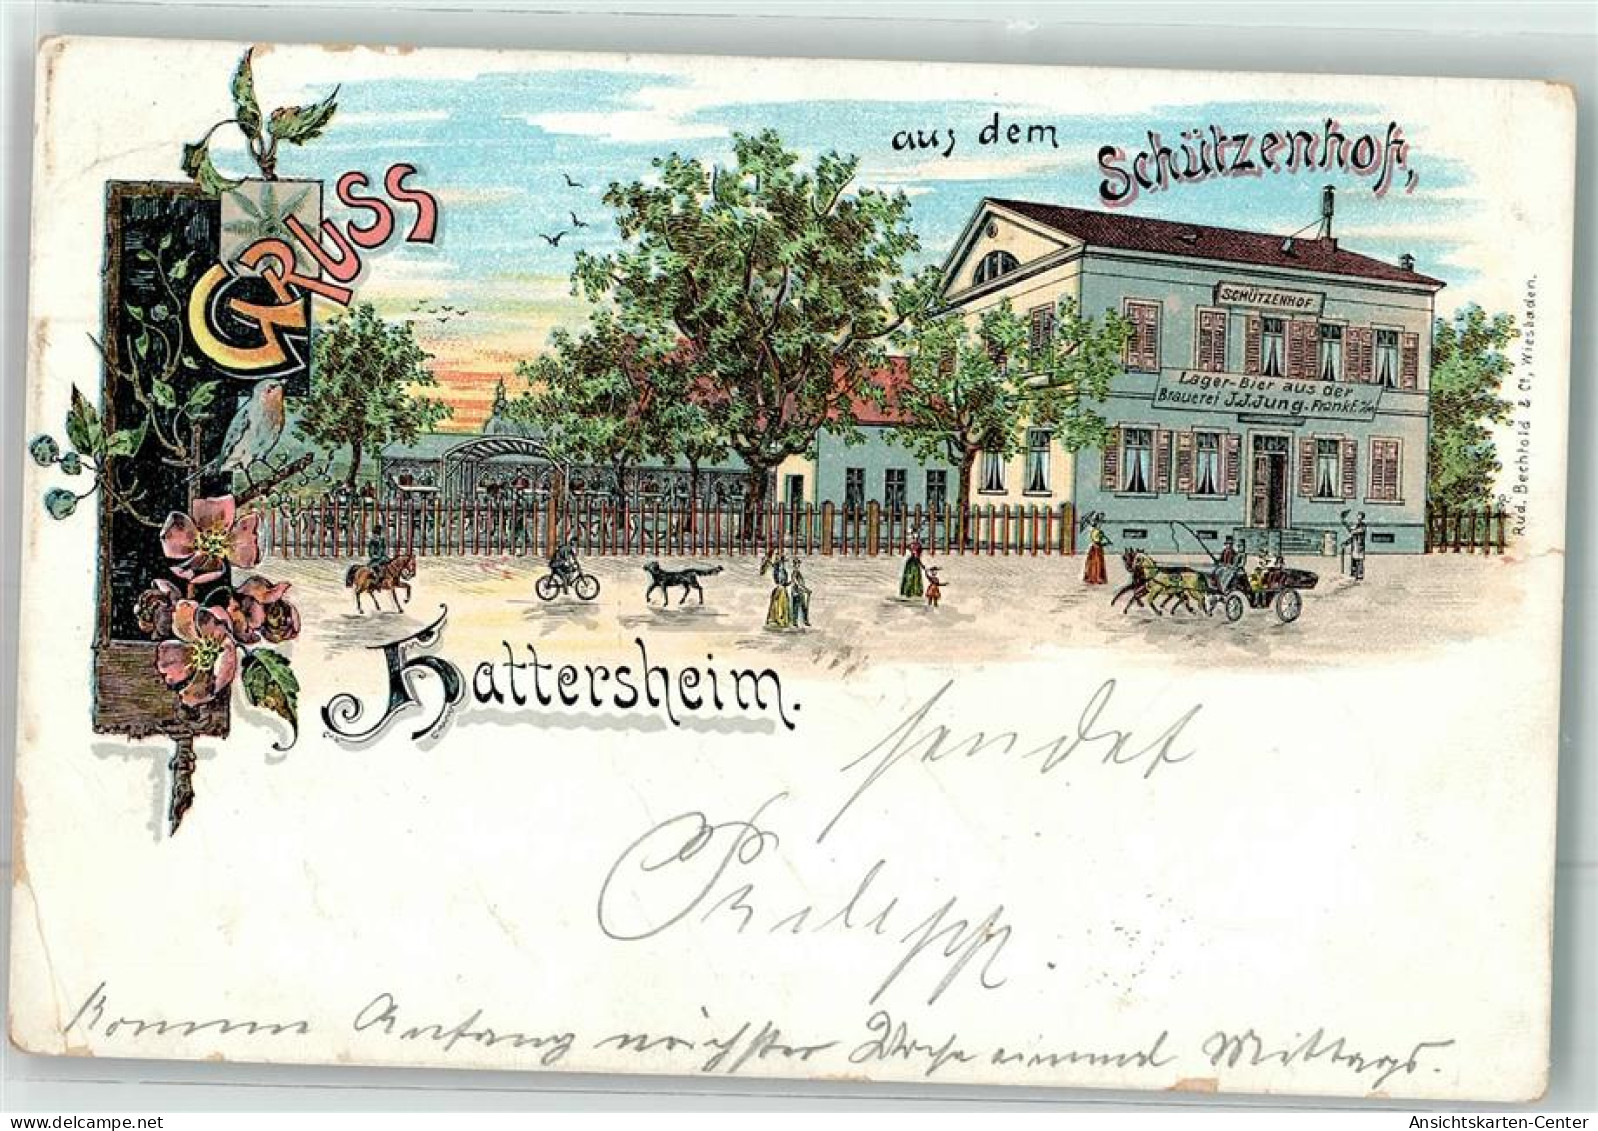 GRUSS
aus dem
Schützenhof,
SCHÜTZENHOF
Lager-Bier aus der
Brauerei J.J.Jung. Frankf. a/M
Hattersheim.
Rud. Bechtold & Co, Wiesbaden.
sendet
Philipp.
Komme Anfang nächster Woche einmal Mittags.
Ansichtskarten-Center